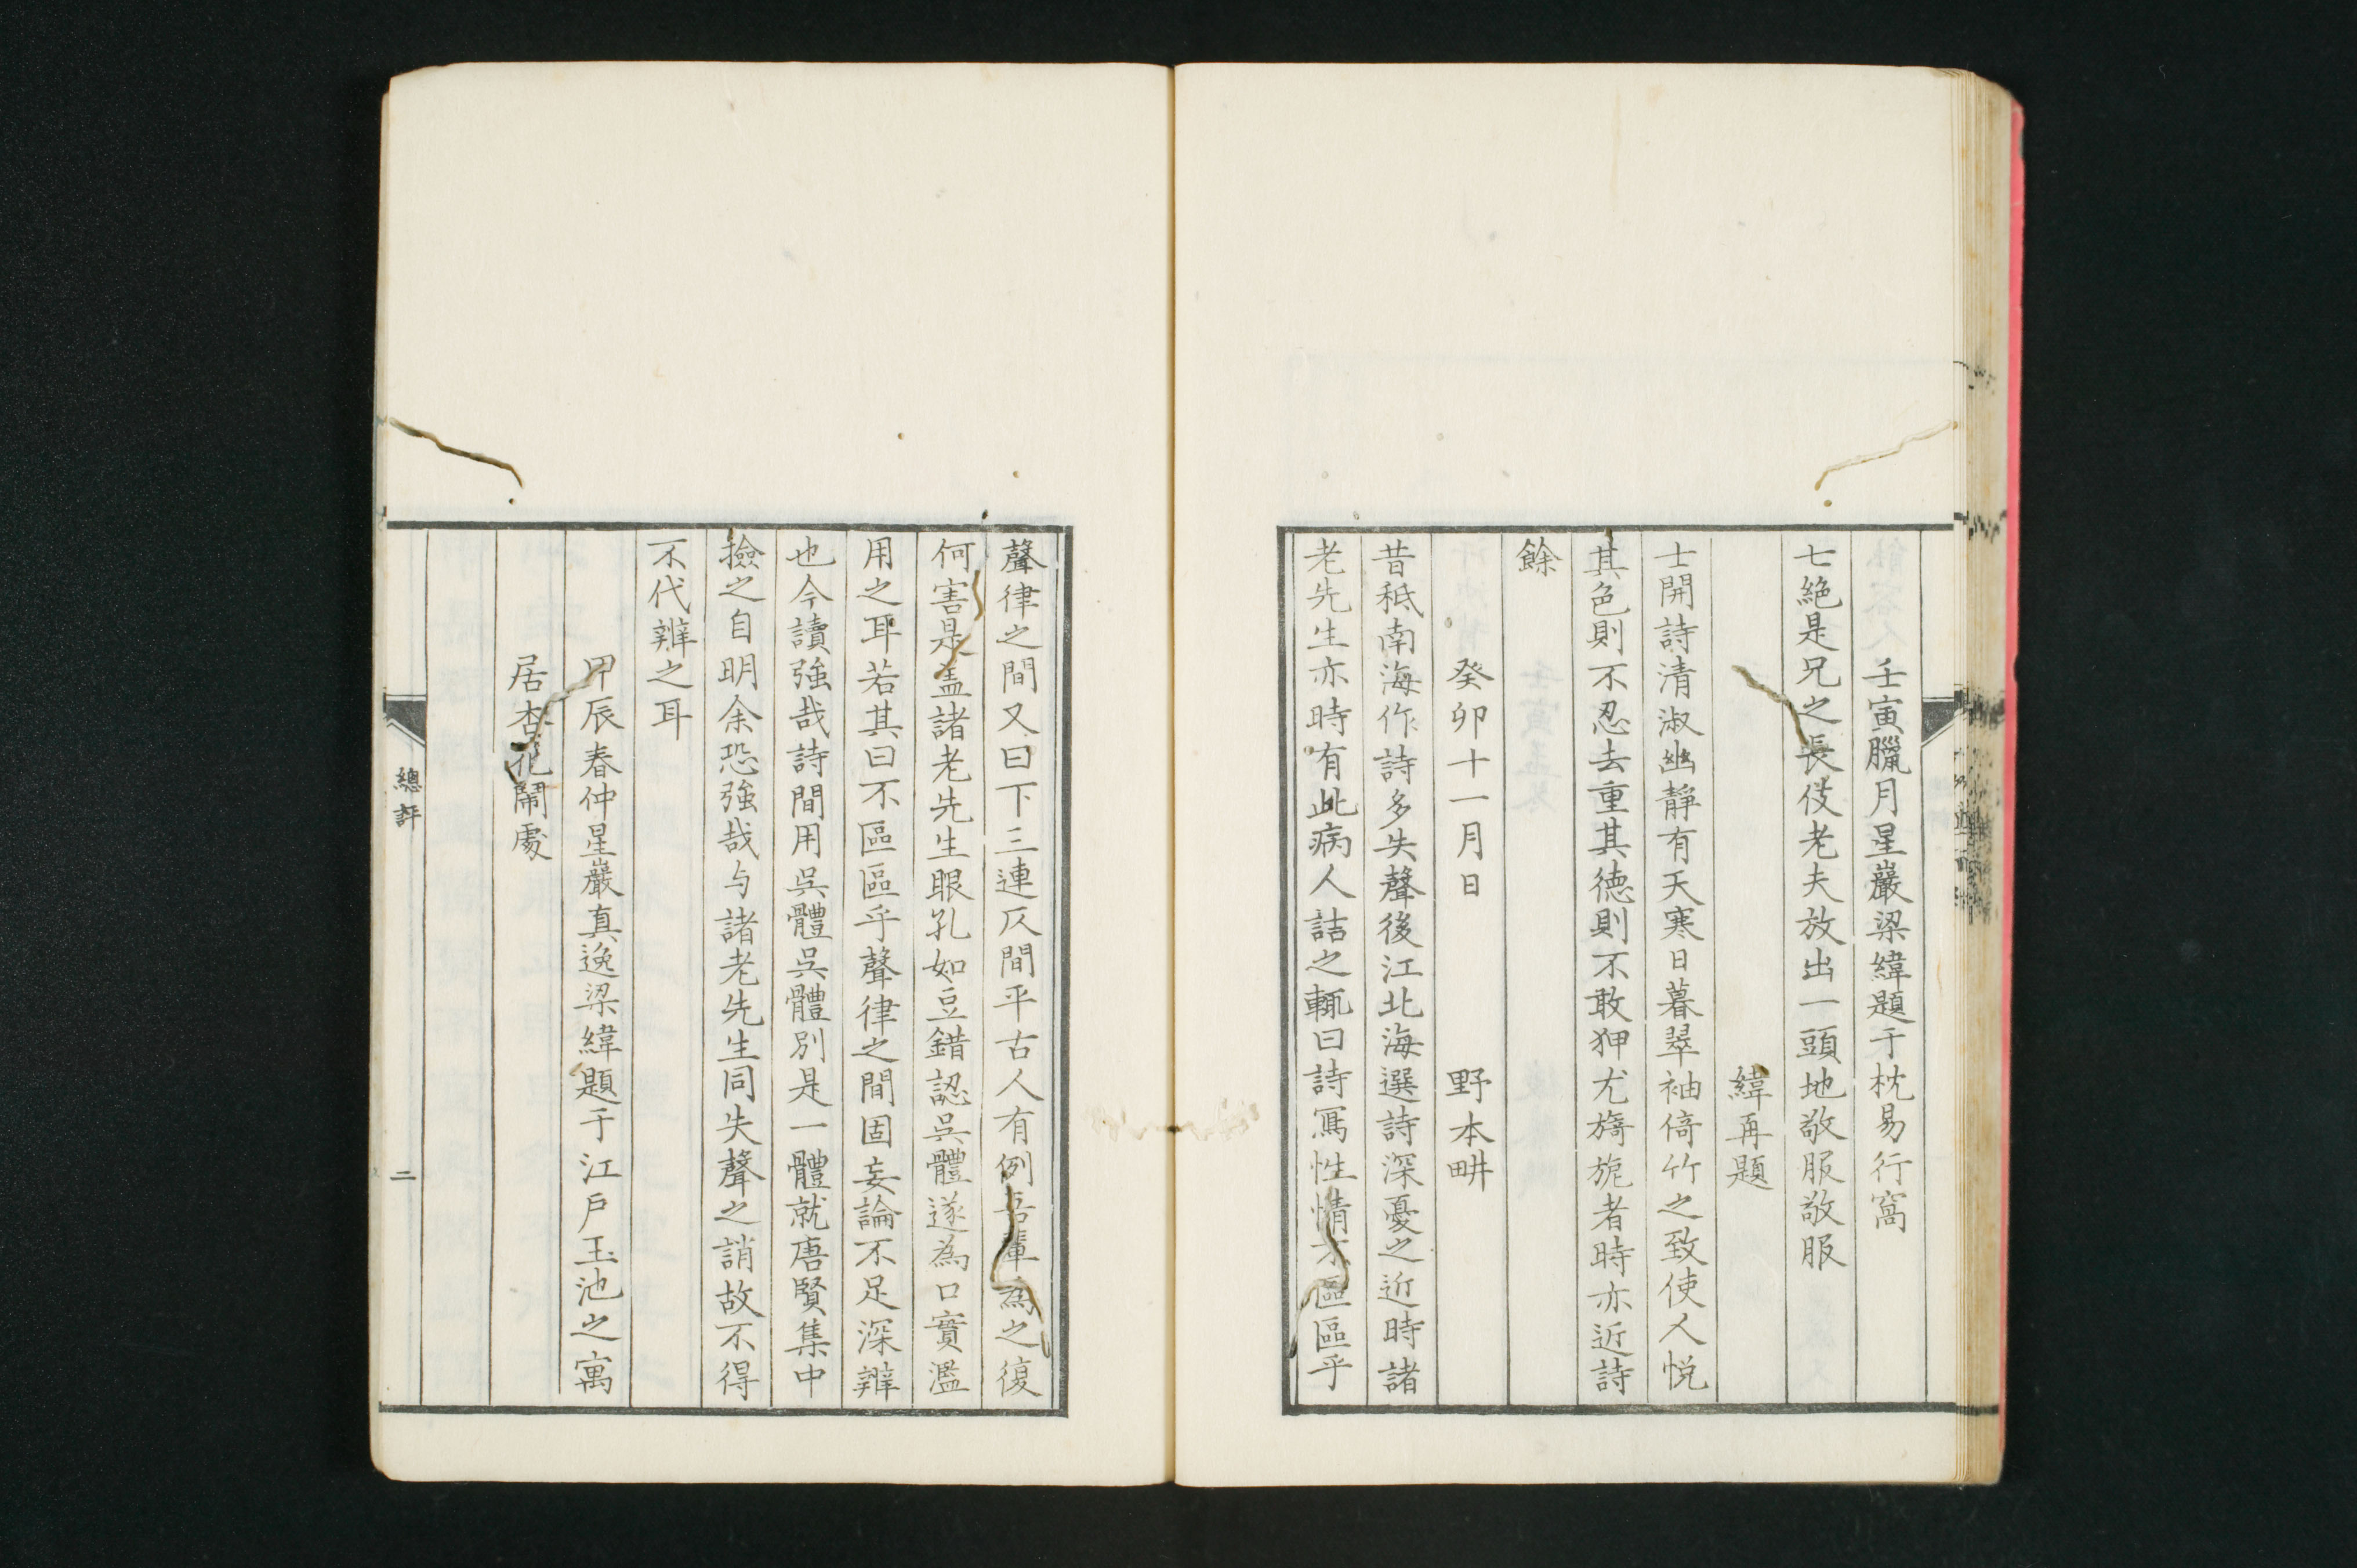 壬寅臘月星巖梁緯題于枕易行窩
七絶是兄之長伎老夫放出一頭地敬服敬服
緯再題
士開詩清淑幽靜有天寒日暮翠袖倚竹之致使人悦
其色則不忍去重其德則不敢狎尤旖旎者時亦近詩
餘
癸卯十一月日 野本畊
昔秪南海作詩多失聲後江北海選詩深憂之近時諸
老先生亦時有此病人詰之輒曰詩寫性情不區區乎
聲律之間又曰下三連仄間平古人有例吾輩為之復
何害是盖諸老先生眼孔如豆錯認呉體遂為口實濫
用之耳若其曰不區區乎聲律之間固妄論不足深辨
也今讀強哉詩間用呉體呉體別是一體就唐賢集中
撿之自明余恐強哉与諸老先生同失聲之誚故不得
不代辨之耳
甲辰春仲星巖真逸梁緯題于江戶玉池之寓
居杏花鬧處
總評
二